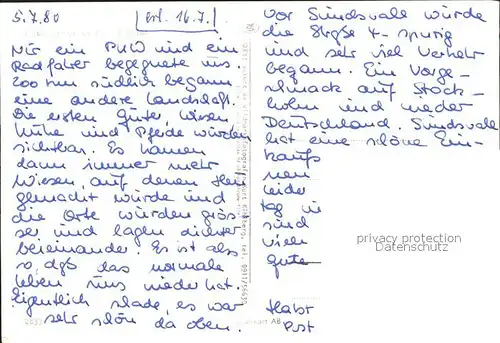 5.7.80 [erl. 16.7.]
Nur ein PKW und ein
Radfahrer begegnete uns.
200 km südlich begann
eine andere Landschaft.
Die ersten Güter, Wiesen
Kühe und Pferde wurden
sichtbar. Es kamen
dann immer mehr
Wiesen, auf denen Heu
gemacht wurde und
die Orte wurden grös
ser und lagen dichter
beieinander. Es ist also
so, daß das normale
Leben uns wieder hat.
Eigentlich schade, es war
sehr schön da oben.
Vor Sundsvale wurde
die Straße 4-spurig
und sehr viel Verkehr
begann. Ein Vorge-
schmack auf Stock-
holm und wieder
Deutschland. Sundsvale
hat eine schöne Ein-
kaufs
leider
tag
sind
viele
gute
privacy protection
Datenschutz
Habt
Post